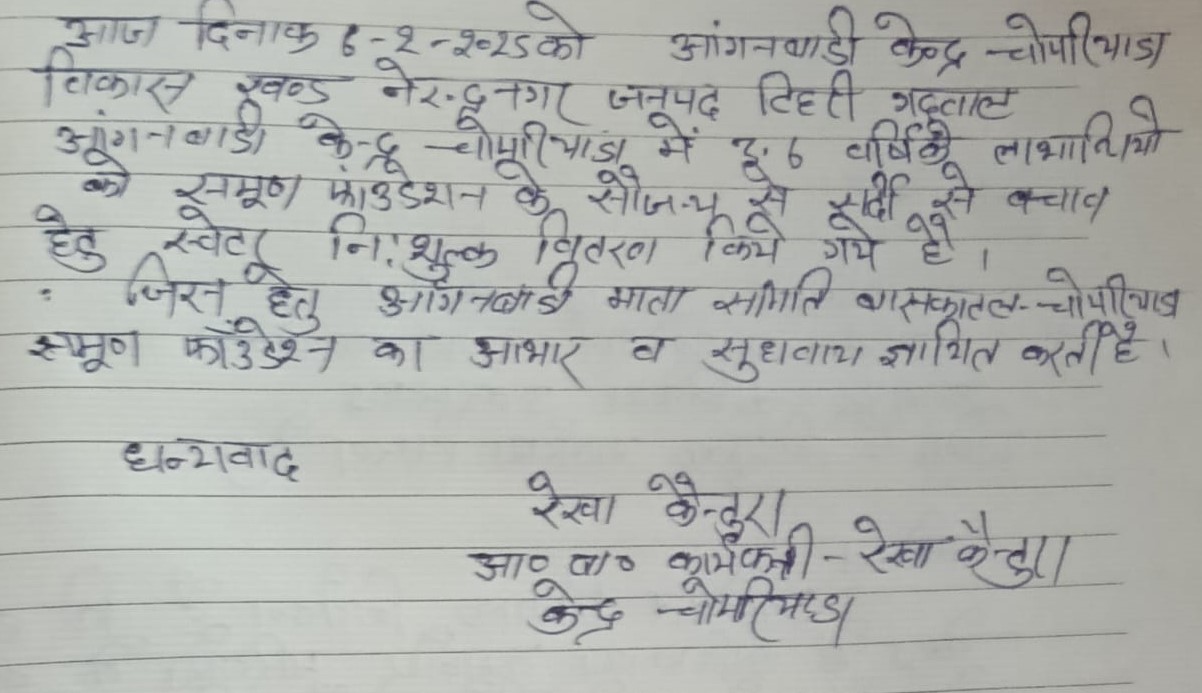 आज दिनाक 6-2-2025 को आंगनवाडी केन्द्र चोपरियाडा
विकास खण्ड नरेन्द्रनगर जनपद टिहरी गढ़वाल
आंगनवाडी केन्द्र चोपरियाडा में 3.6 वर्षिके लाभार्थियो
को समूण फांउडेशन के सौजन्य से सर्दी से बचाव
हेतु स्वेटर नि:शुल्क वितरण किये गये है।
: जिस हेतु आंगनवाडी माता समिति चोपरियाडा
समूण फॉउडेशन का आभार व ज्ञापित करती है।
धन्यवाद
रेखा कैन्तुरा
आ० वा० कार्यकत्री - रेखा कैन्तुरा
केन्द्र चोपरियाडा